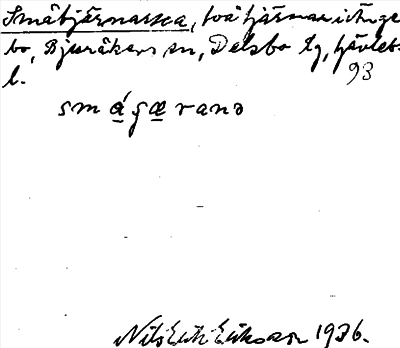 Småtjärnarna, två tjärnar i Ånge
bo, Bjuråkers sn, Delsbo tg, Gävleb.
l. 93
smågærana
Nils Erik Eriksson 1936.